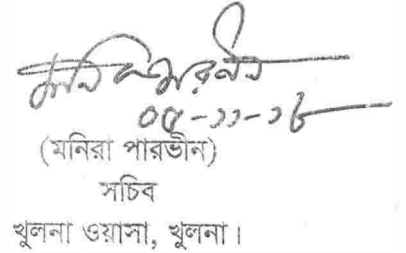 ০৫-১১-১৮
(মনিরা পারভীন)
সচিব
খুলনা ওয়াসা, খুলনা।